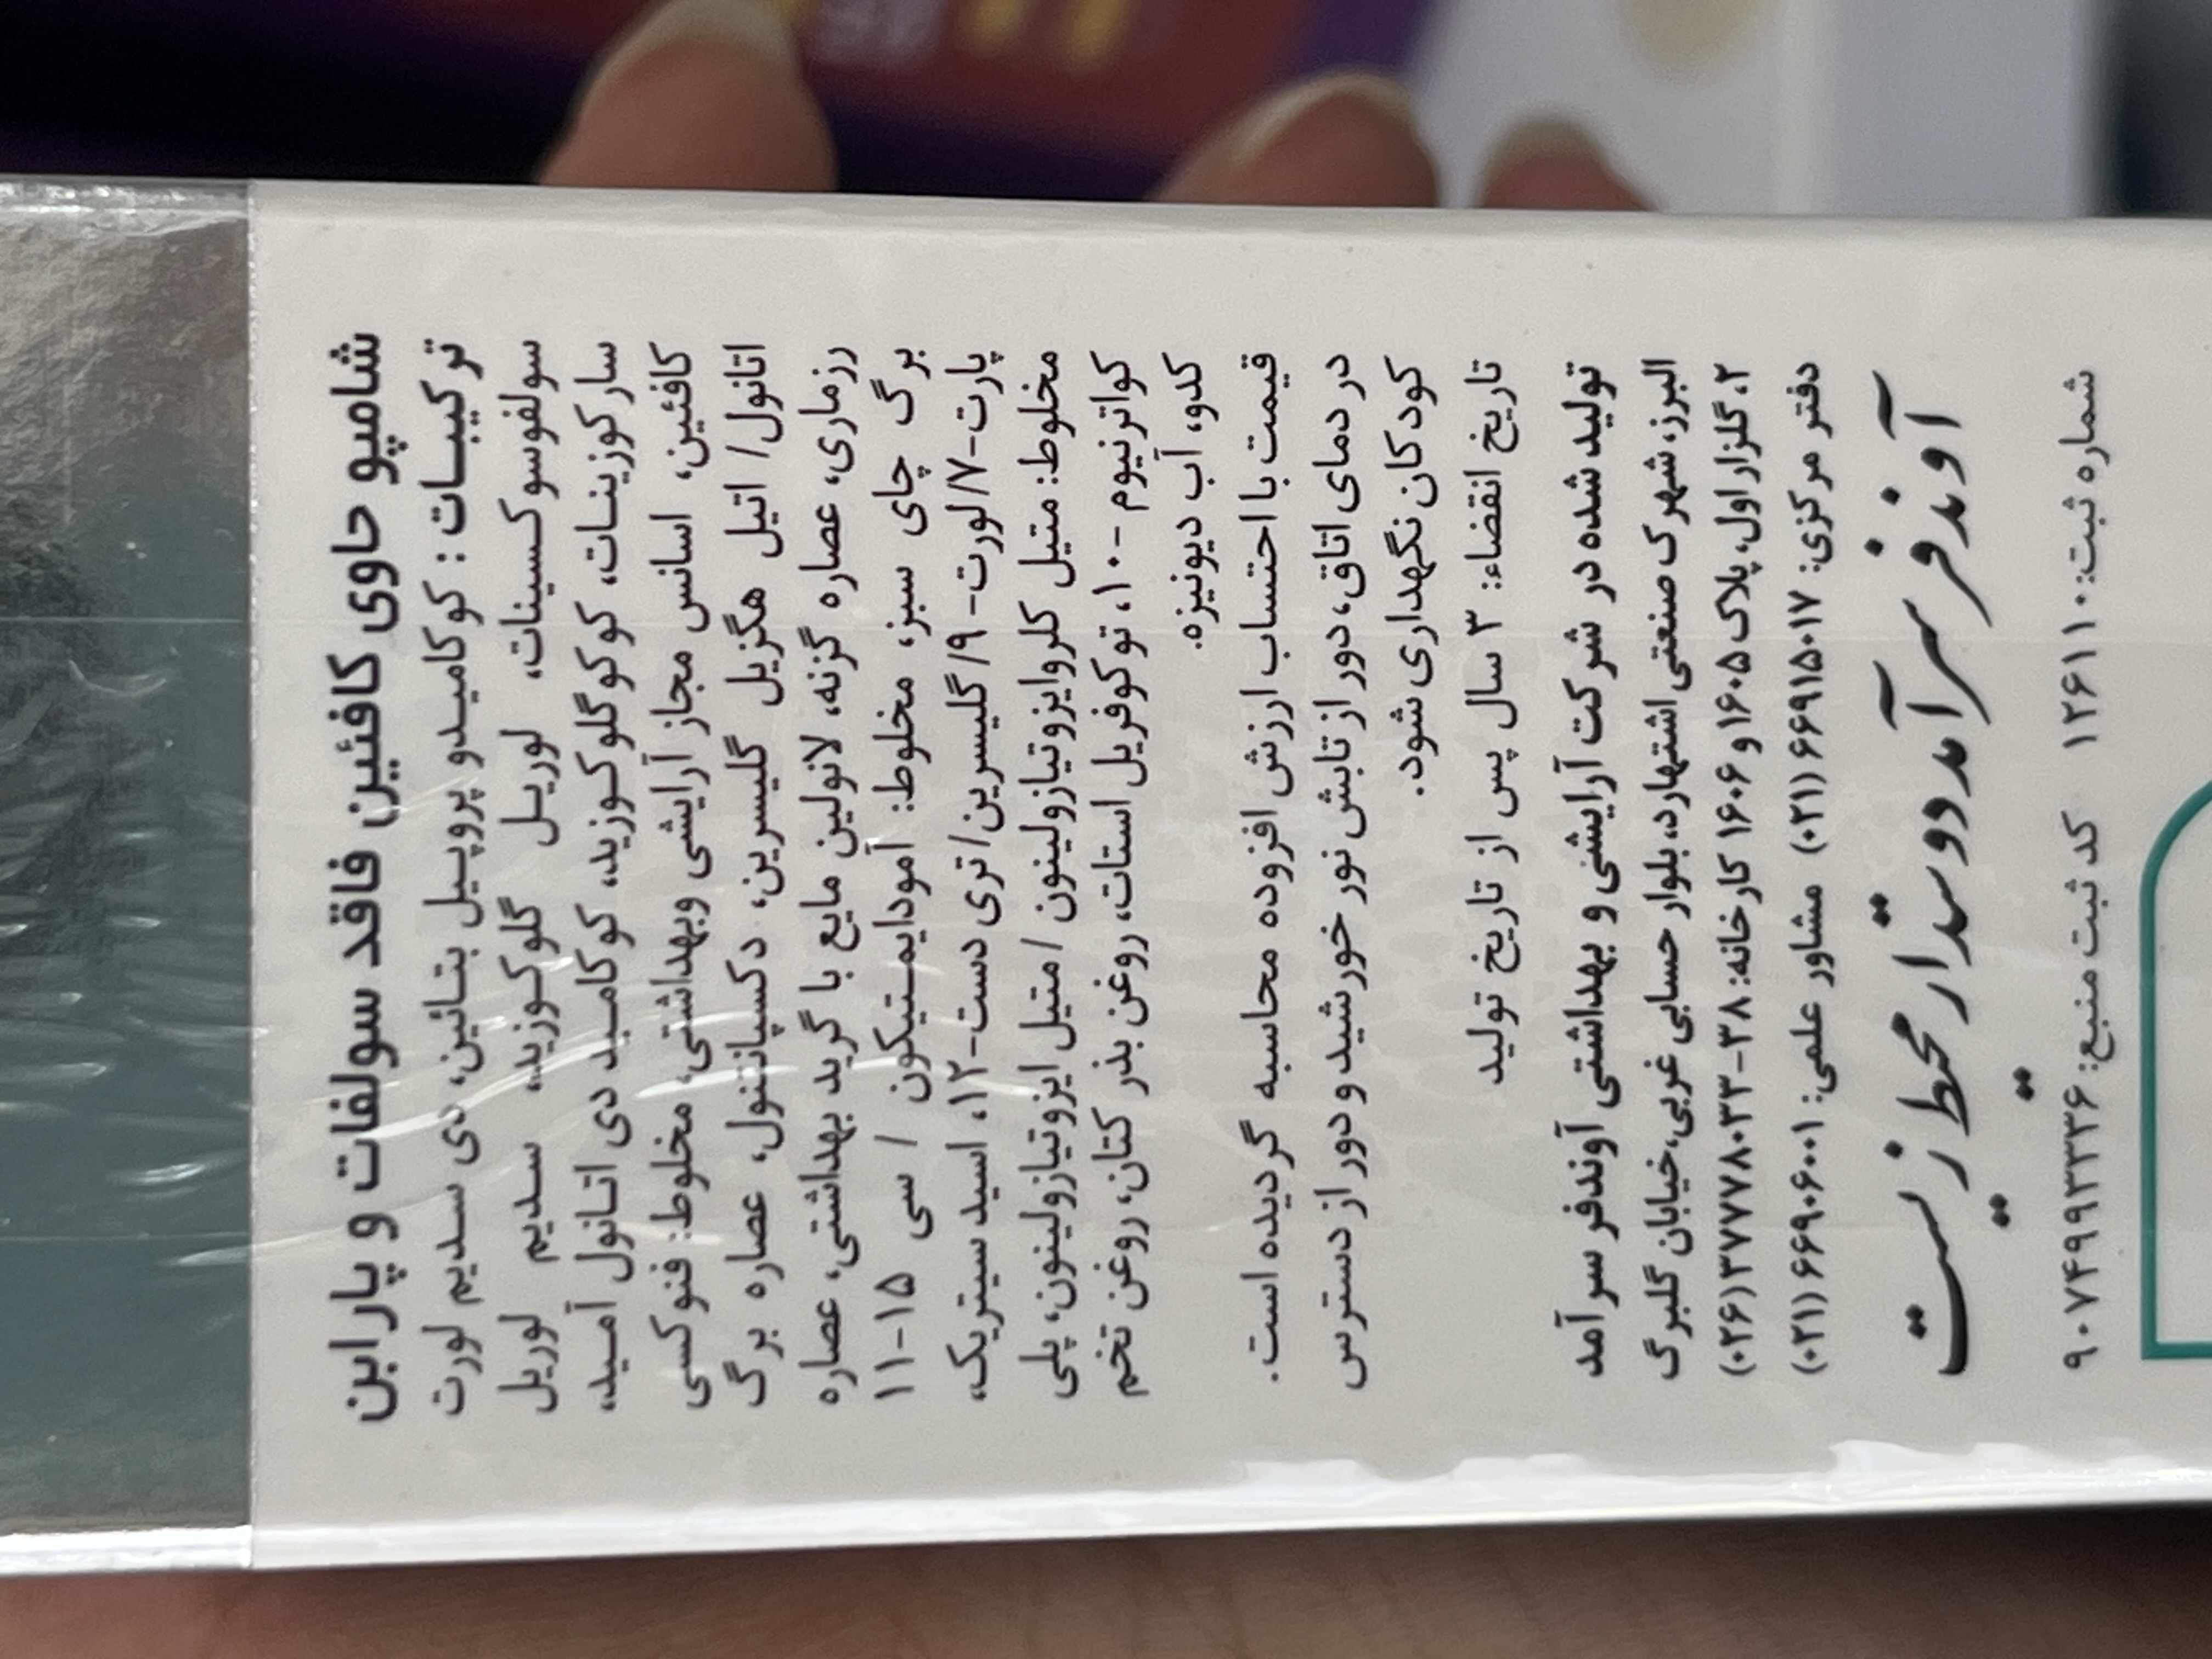 شامپو حاوی کافئین فاقد سولفات و پارابن
ترکیبات : کوکامیدو پروپیل بتائین، دی سدیم لورت
سولفوسوکسینات، لوریل گلوکوزید، سدیم لوریل
سارکوزینات، کوکوگلوکوزید، کوکامید دی اتانول آمید،
کافئین، اسانس مجاز آرایشی وبهداشتی، مخلوط: فنوکسی
اتانول/ اتیل هگزیل گلیسرین، دکسپانتنول، عصاره برگ
رزماری، عصاره گزنه، لانولین مایع با گرید بهداشتی، عصاره
برگ چای سبز، مخلوط: آمودایمتیکون / سی ۱۵-۱۱
پارت-۷/لورت- ۹/ گلیسرین/ تری دست-۱۲، اسید سیتریک،
مخلوط: متیل کلروایزوتیازولینون / متیل ایزوتیازولینون، پلی
کواترنیوم -۱۰، توکوفریل استات، روغن بذر کتان، روغن تخم
کدو، آب دیونیزه.
قیمت با احتساب ارزش افزوده محاسبه گردیده است.
در دمای اتاق، دور از تابش نور خورشید و دور از دسترس
کودکان نگهداری شود.
تاریخ انقضاء: ۳ سال پس از تاریخ تولید
تولید شده در شرکت آرایشی و بهداشتی آوندفر سرآمد
البرز، شهرک صنعتی اشتهارد، بلوار حسابی غربی، خیابان گلبرگ
۲، گلزار اول، پلاک ۱۶۰۵ و ۱۶۰۶ کارخانه: ۳۸-۳۷۷۷۸۰۳۳ (۰۲۶)
دفتر مرکزی: ۶۶۹۱۵۰۱۷ (۰۲۱) مشاور علمی: ۶۶۹۰۶۰۰۱ (۰۲۱)
آوندفر سرآمد دوستدار محیط زیست
شماره ثبت: ۱۲۶۱۱۰ کد ثبت منبع: ۹۰۷۴۹۹۳۳۳۶